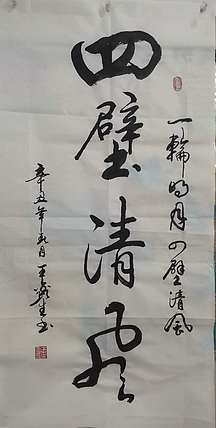 一輪明月四壁清風
四壁清風
辛丑年 月 王 生書